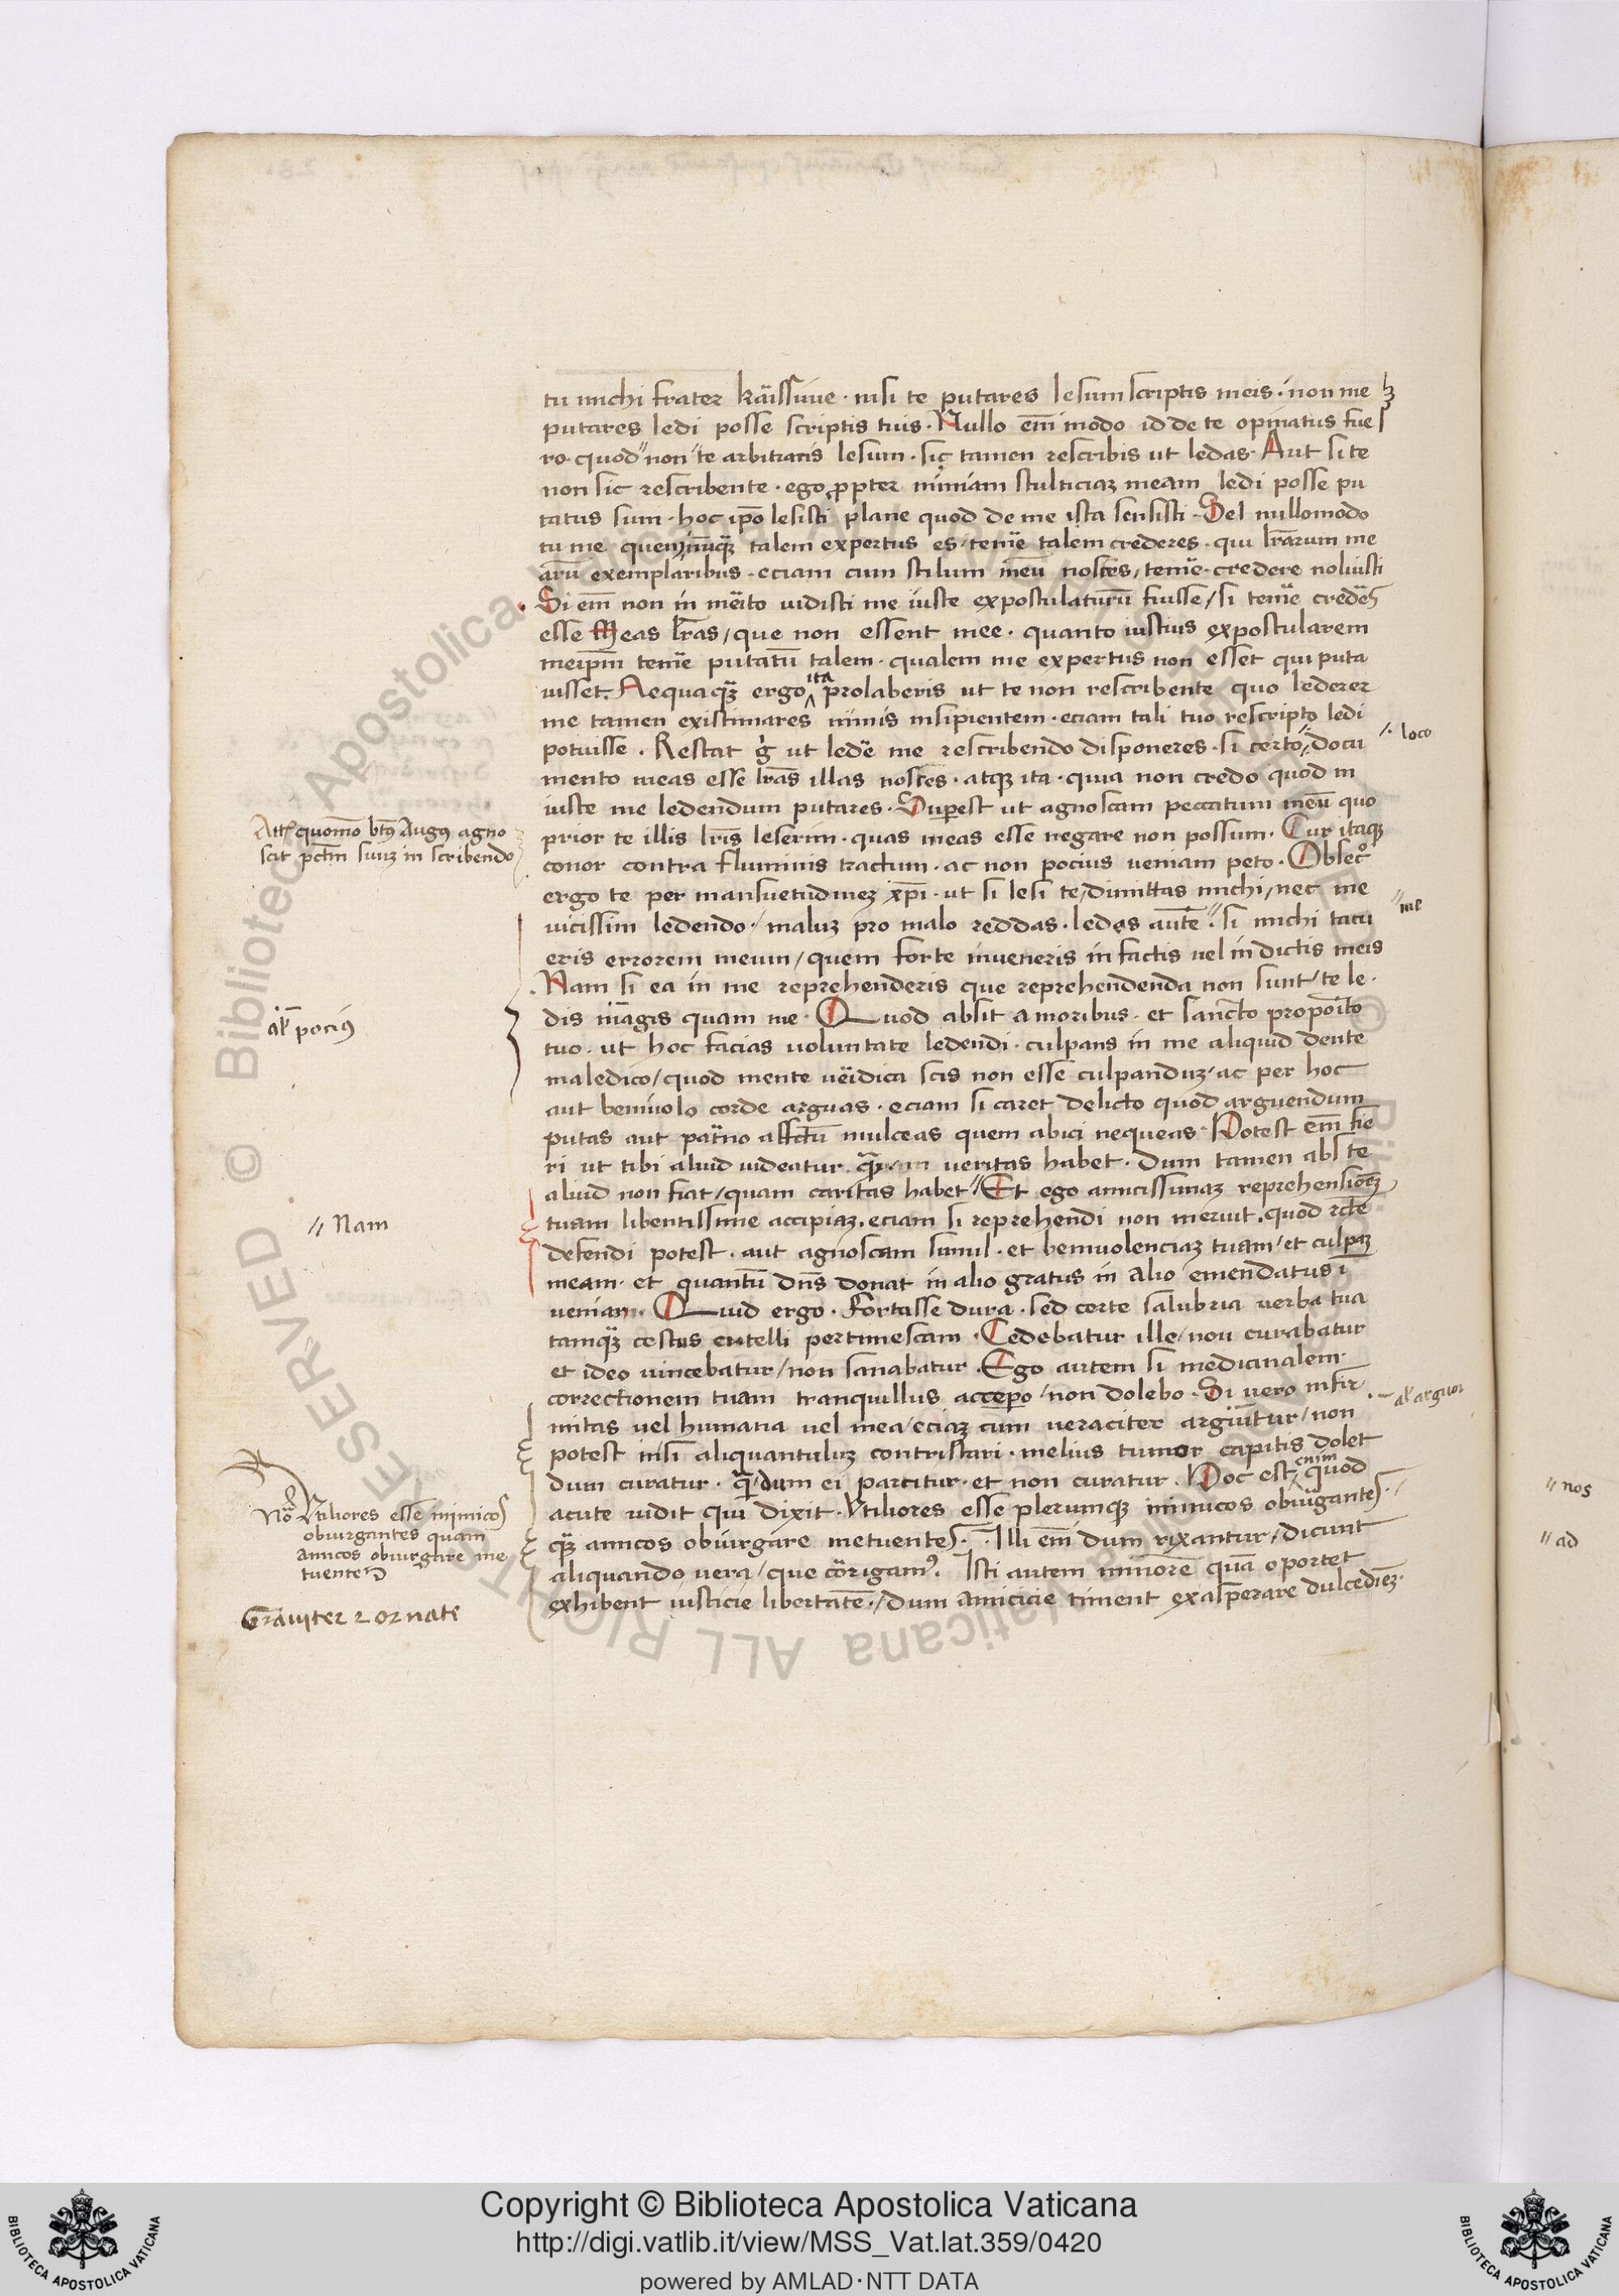 tu michi frater kar̄issime · nisi te putares lesum scriptis meis · non me
putares ledi posse scriptis tuis · Nullo em̄ modo id de te opinatus fue
ro · quod non te arbitratis lesum · sic tamen rescribis ut ledas · Aut si te
non sic rescribente · ego ꝓpter nimiam stulticiaꝫ meam ledi posse pu
tatus sum · hoc ip̄o lesisti plane quod de me ista sensisti · Sel nullomodo
tu me quem nūqꝫ talem expertus es / tem̄e talem crederes · qui lr̄arum me
arū exemplaribus · eciam cum stilum meū nosces / tem̄e credere noluisti
Si em̄ non in mēito uidisti me iuste expostulaturū fuisse / si tem̄e credēs
esse Meas lr̄as / que non essent mee · quanto iustius expostularem
meip̄m tem̄e putatū talem · qualem me expertus non esset qui puta
uisset. Aequaqꝫ ergo ita prolaberis ut te non rescribente quo lederer
me tamen existimares nimis insipientem · eciam tali tuo rescripto ledi
potuisse . Restat g̊ ut ledē me rescribendo disponeres · si certo // docu
// · loco
mento meas esse lr̄as illas nosces · atqꝫ ita · quia non credo quod in
iuste me ledendum putares · Suꝑest ut agnoscam peccatum meū quo
Att̄ quomō bt̄us Augus agno
scit pctm̄ suuꝫ in scribendo
prior te illis lr̄is leserim · quas meas esse negare non possum · Cur itaqꝫ
conor contra fluminis tractum · ac non pocius ueniam peto · Obsecͦ
ergo te per mansuetudineꝫ xp̄i · ut si lesi te / dimittas michi / nec me
uicissim ledendo / maluꝫ pro malo reddas · ledes autē // si michi tacu
// me
eris errorem meum / quem forte inueneris in factis uel in dictis meis
Nam si ea in me reprehenderis que reprehendenda non sunt / te le ·
al' pocius
dis magis quam me · Quod absit a moribus · et sancto propoīto
tuo · ut hoc facias uoluntate ledendi · culpans in me aliquid dente
maledico / quod mente uēidica scis non esse culpanduꝫ / ac per hoc
aut beniuolo corde arguas · eciam si caret delicto quod arguendum
putas aut pat̄no affctū mulceas quem abici nequeas · Potest em̄ fie
ri ut tibi aliud uideatur quam ueritas habet · dum tamen abs te
aliud non fiat / quam caritas habet // Et ego amicissimaꝫ reprehensionēꝫ
// Nam
tuam libentissime accipiaꝫ . eciam si reprehendi non meruit . quod rctē
defendi potest · aut agnoscam simul · et beniuolenciaꝫ tuam / et culpaꝫ
meam · et quantū dn̄s donat in alio gratus in alio emendatus ī
ueniar · Quid ergo · fortasse dura · sed certe salubria uerba tua
tamqꝫ cestus entelli pertimescam · Cedebatur ille / non curabatur
et ideo uincebatur / non sanabatur · Ego autem si medicinalem
correctionem tuam tranquillus acceꝑo / non dolebo · Si uero infir
al' arguor
mitas uel humana uel mea / eciaꝫ cum ueraciter arguītur / non
potest nisi aliquantuluꝫ contristari · melius tumor capitis dolet
dum curatur · quam dum ei parcitur · et non curatur · Hoc est enim quod
Nōͣ Vtiliores esse inimicos
obiurgantes quam
amicos obiurgare me
tuentes
acute uidit qui dixit · Vtiliores esse plerumqꝫ inimicos obiurgantes · /
qꝫ amicos obiurgare metuentes · Illi em̄ dum rixantur / dicunt
aliquando uera / que corrigamꝰ · Isti autem minorē quā oportet
exhibent iusticie libertatē / dum amicicie timent exasꝑerare dulcediēꝫ ·
Grauiter ꝛ ornate
// nos
// ad
Copyright © Biblioteca Apostolica Vaticana
http://digi.vatlib.it/view/MSS_Vat.lat.359/0420
powered by AMLAD·NTT DATA
BIBLIOTECA APOSTOLICA VATICANA
BIBLIOTECA APOSTOLICA VATICANA